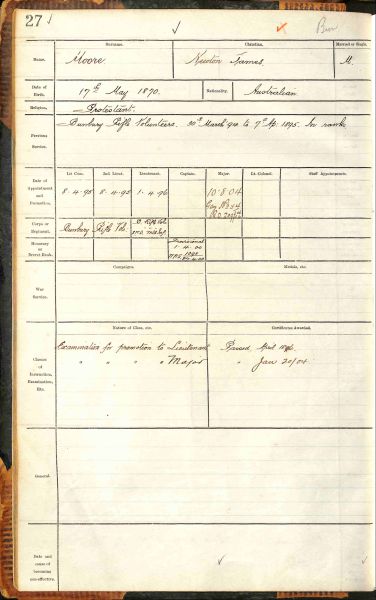 27
Surname.
Christian.
Married or Single.
Name.
Moore
Newton James.
M.
Date of Birth.
17th May 1870.
Nationality.
Australian
Religion.
Protestant.
Previous Service.
Bunbury Rifle Volunteers. 30th March to 7th Ap. 1895. In ranks
1st Com.
2nd. Lieut.
Lieutenant.
Captain.
Major.
Lt.-Colonel.
Staff Appointments.
Date of Appointment and Promotion.
8.4.95
8.4.95
1.4.96
10.8.04
Corps or Regiment.
Bunbury Rifle Vol.
Honorary or Brevet Rank.
Provisional
1.4.00
Campaigns.
Medals, etc.
War Service.
Nature of Class, etc.
Certificates Awarded.
Classes of Instruction, Examination, Etc.
Examination for promotion to Lieutenant
Passed April
" " " " Major
" Jan 20/04
General.
Date and cause of becoming non-effective.